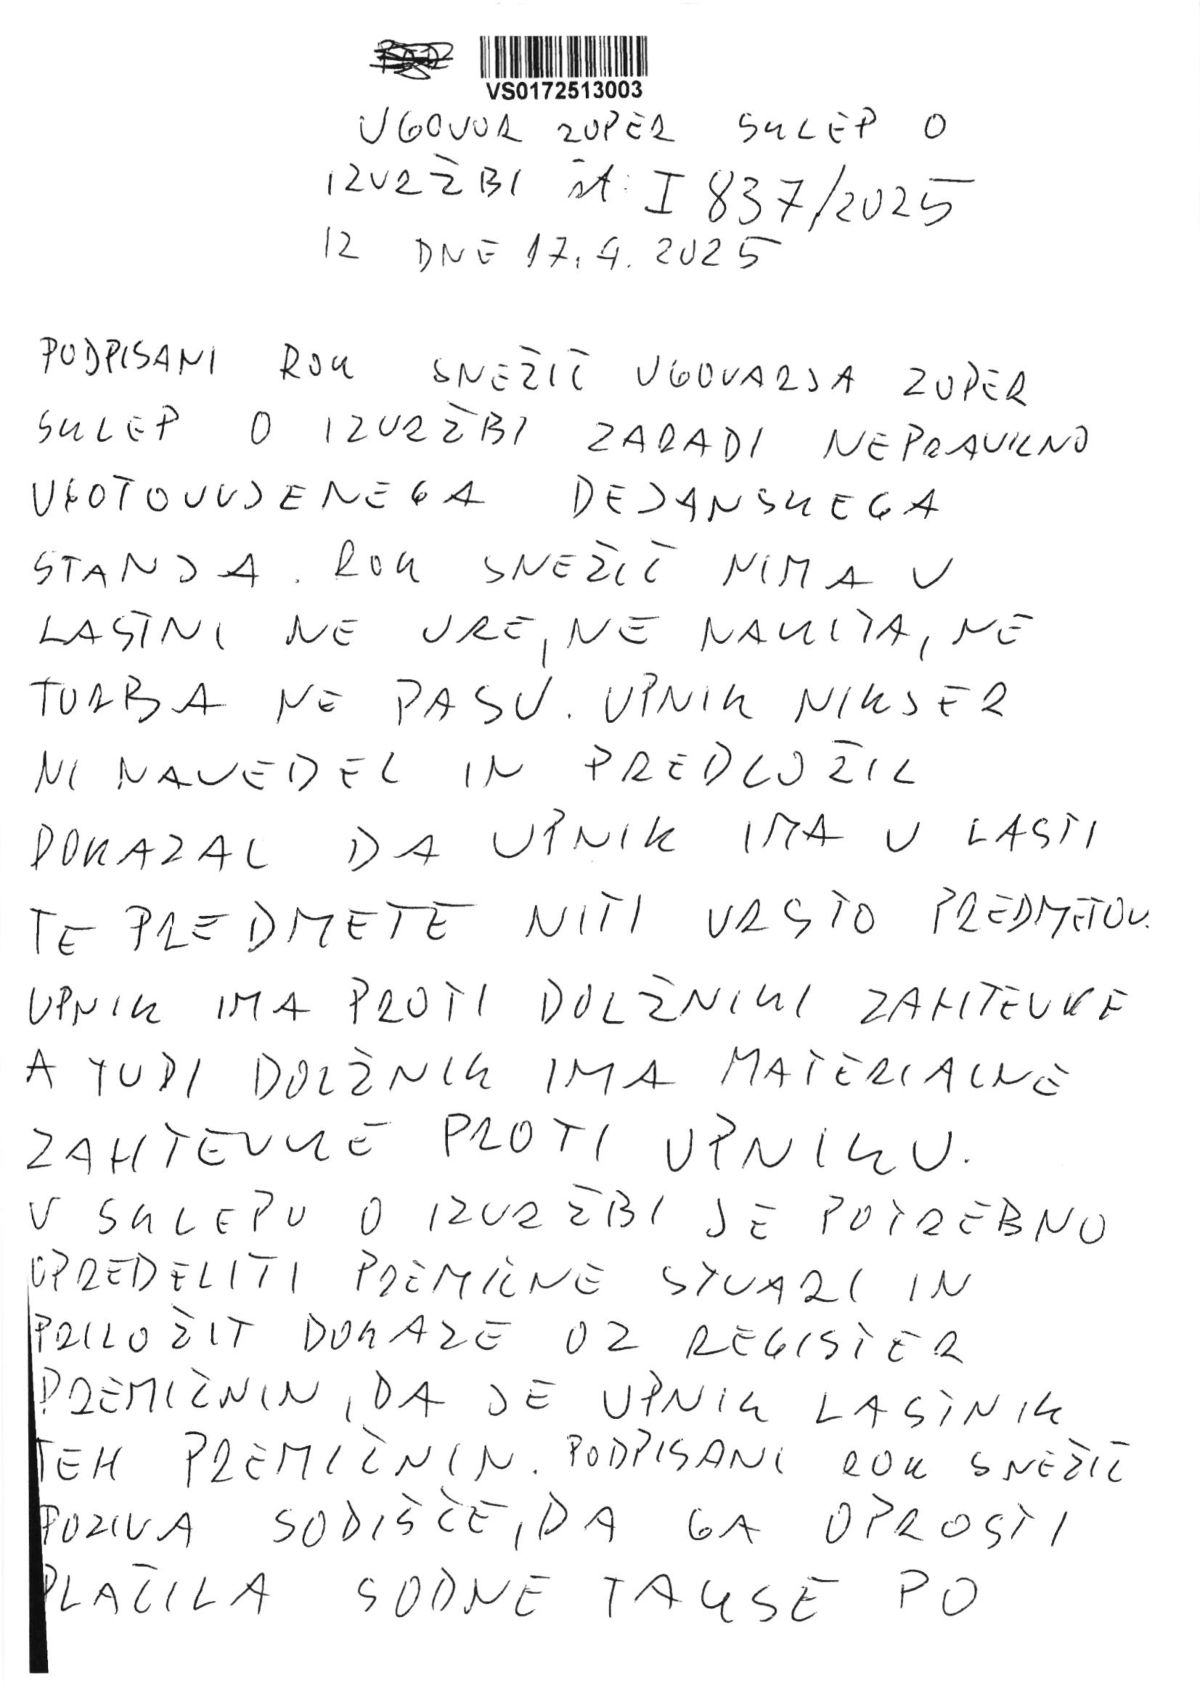 VS0172513003
UGOVOR ZOPER SKLEP O
IZVRŽBI št: I 837/2025
IZ DNE 17.4.2025
PODPISANI ROK SNEŽIČ UGOVARJA ZOPER
SKLEP O IZVRŽBI ZARADI NEPRAVILNO
UGOTOVVJENEGA DEJANSKEGA
STANJA. ROK SNEŽIČ NIMA V
LASTNI NE URE, NE NAKITA, NE
TORBA NE PASU. UPNIK NIKJER
NI NAVEDEL IN PREDLOŽIL
DOKAZAL DA UPNIK IMA V LASTI
TE PREDMETE NITI VRSTO PREDMETOV.
UPNIK IMA PROTI DOLŽNIKI ZAHTEVKE
A TUDI DOLŽNIK IMA MATERIALNE
ZAHTEVKE PROTI UPNIKU.
V SKLEPU O IZVRŽBI JE POTREBNO
OPREDELITI PREMIČNE STVARI IN
PRILOŽIT DOKAZE OZ REGISTER
PREMIČNIN, DA JE UPNIK LASTNIK
TEH PREMIČNIN. PODPISANI ROK SNEŽIČ
POZIVA SODIŠČE, DA GA OPROSTI
PLAČILA SODNE TAKSE PO